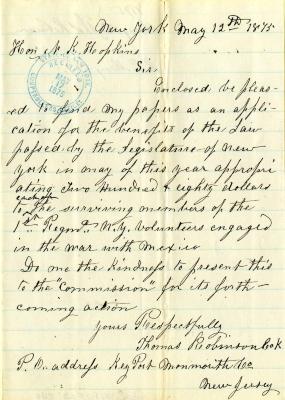 New York May 12th 1875
Hon N. K. Hopkins
Sir.
Enclosed be pleas-
ed to find my papers as an appli-
cation for the benefit of the Law
passed by the Legislature of New
York in may of this year appropri
ating Two Hundred & eighty dollars
each
to the surviving members of the
1st Regmt N.Y. Volunteers engaged
in the war with Mexico
Do me the Kindness to present this
to the "Commission" for its forth-
coming action
yours Respectfully
Thomas Robinson
P. O. address Key Port Monmouth Co
New Jersey